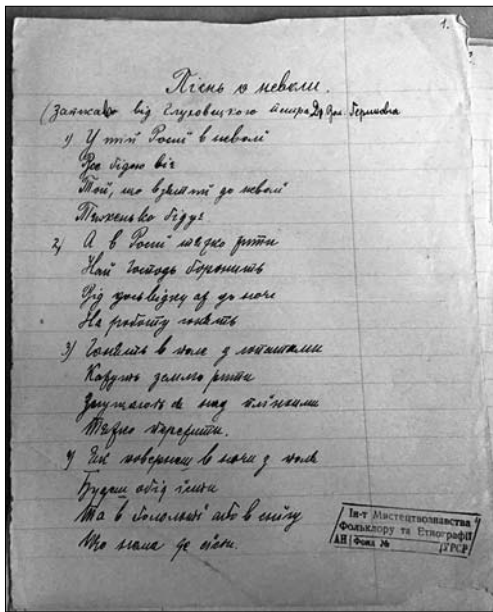 1.
Пісень о неволи.
(Записано від Глуховецкого Петра Др. Вол. Геринович
1) У тій Росиї в неволї
Все бідою віє
Той, що взятий до неволї
Тяженько бідує
2) А в Росиї тяжко жити
Най Господь боронить
Від досьвідку аж до ночи
На роботу гонять
3) Гонять в поле з лопатами
Кажуть землю рити
Знущають ся над плїнними
Тяжко пережити.
4) Як повернеш в ночи з поля
Будеш обід їсти
Та в болотї або в снїгу
Бо нема де сїсти.
Ін-т Мистецтвознавства
Фольклору та Етнографії
АН Фонд № УРСР